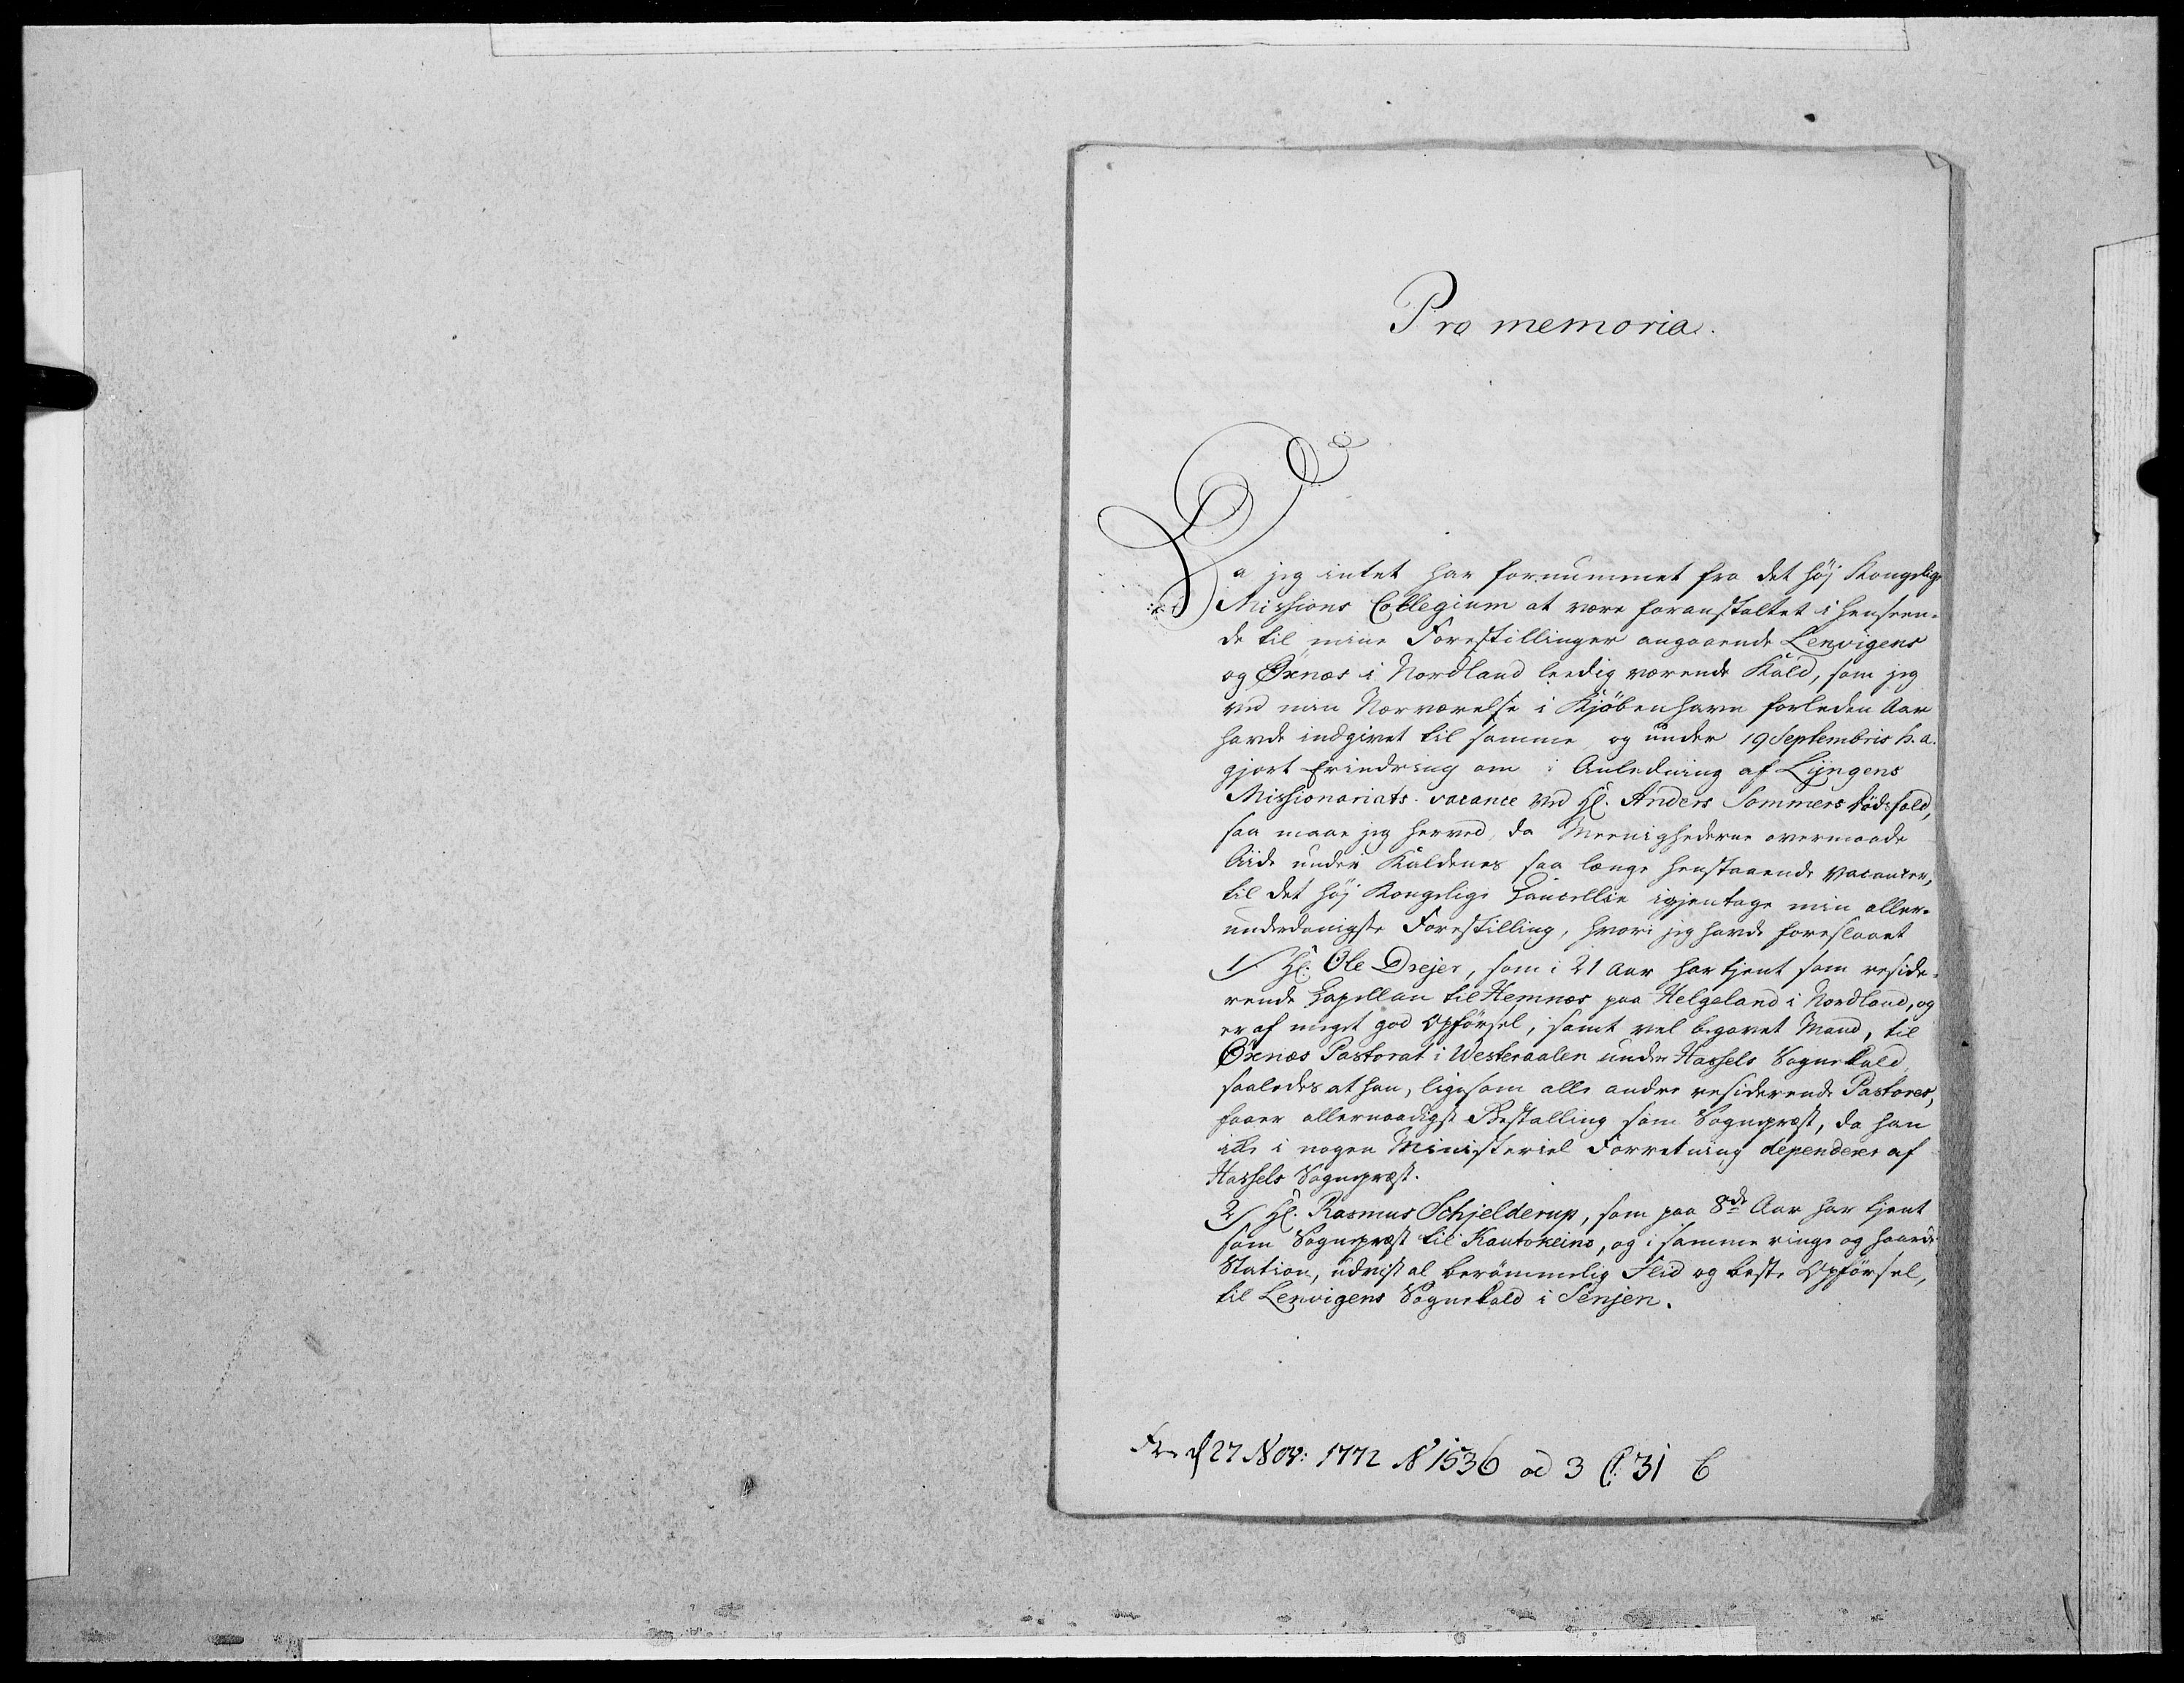 Pro memoria.
Da jeg intet har fornummet fra det høj Kongelige
Missions Collegium at være foranstaltet i henseen-
de til mine Forestillinger angaaende Lenvigens
og Øxnæs i Nordland leedig værende Kald, som jeg
ved min Nærværelse i Kjøbenhavn forleden Aar
havde indgivet til samme, og under 19 Septembris h. a.
gjort Erindring om i Anledning af Lyngens
Missionariats vacance ved Hr. Anders Sommers dödsfald,
saa maae jeg herved, da Meenighederne overmaade
liide under Kaldenes saa længe henstaaende vacancer,
til det høj Kongelige Cancellie igjentage min aller-
underdanigste Forestilling, hvori jeg havde foreslaaet
1/ Hr. Ole Drejer, som i 21 Aar har tjent som reside-
rende Capellan til Hemnæs paa Helgeland i Nordland, og
er af meget god Opförsel, samt vel begavet Mand, til
Øxnæs Pastorat i Westeraalen under Hassels Sognekald,
saaledes at han, ligesom alle andre residerende Pastores,
faaer allernaadigst Bestalling som Sognepræst, da han
ikke i nogen Ministeriel Forretning dependerer af
Hassels Sognepræst.
2/ Hr. Rasmus Schjelderup, som paa 8de Aar har tjent
som Sognepræst til Kautokeino, og i samme ringe og haarde
Station, udvist al berömmelig Flid og beste Opförsel,
til Lenvigens Sognekald i Senjen.
27 Nov: 1772 N 1536 ad 3 31 C